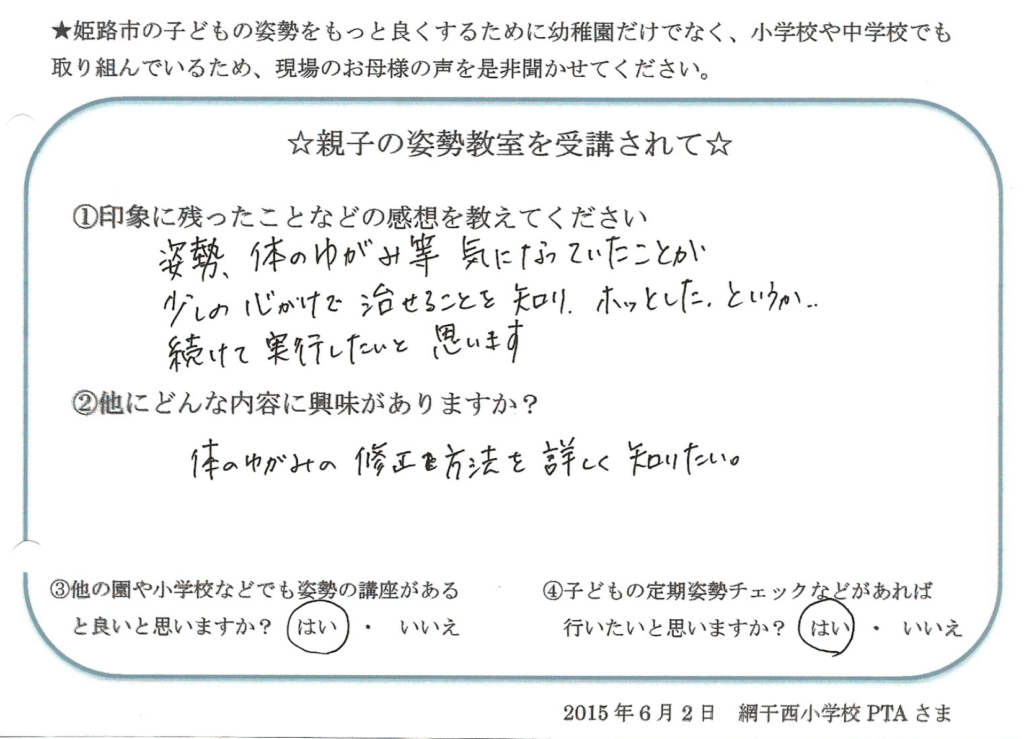 ★姫路市の子どもの姿勢をもっと良くするために幼稚園だけでなく、小学校や中学校でも
取り組んでいるため、現場のお母様の声を是非聞かせてください。
☆親子の姿勢教室を受講されて☆
①印象に残ったことなどの感想を教えてください
姿勢、体のゆがみ等 気になっていたことが
少しの心がけで 治せることを 知り、ホッとした、というか..
続けて 実行したいと 思います
②他にどんな内容に興味がありますか？
体のゆがみの 修正方法を 詳しく 知りたい。
③他の園や小学校などでも姿勢の講座がある
と良いと思いますか？ はい ・ いいえ
④子どもの定期姿勢チェックなどがあれば
行いたいと思いますか？ はい ・ いいえ
2015年6月2日 網干西小学校PTAさま